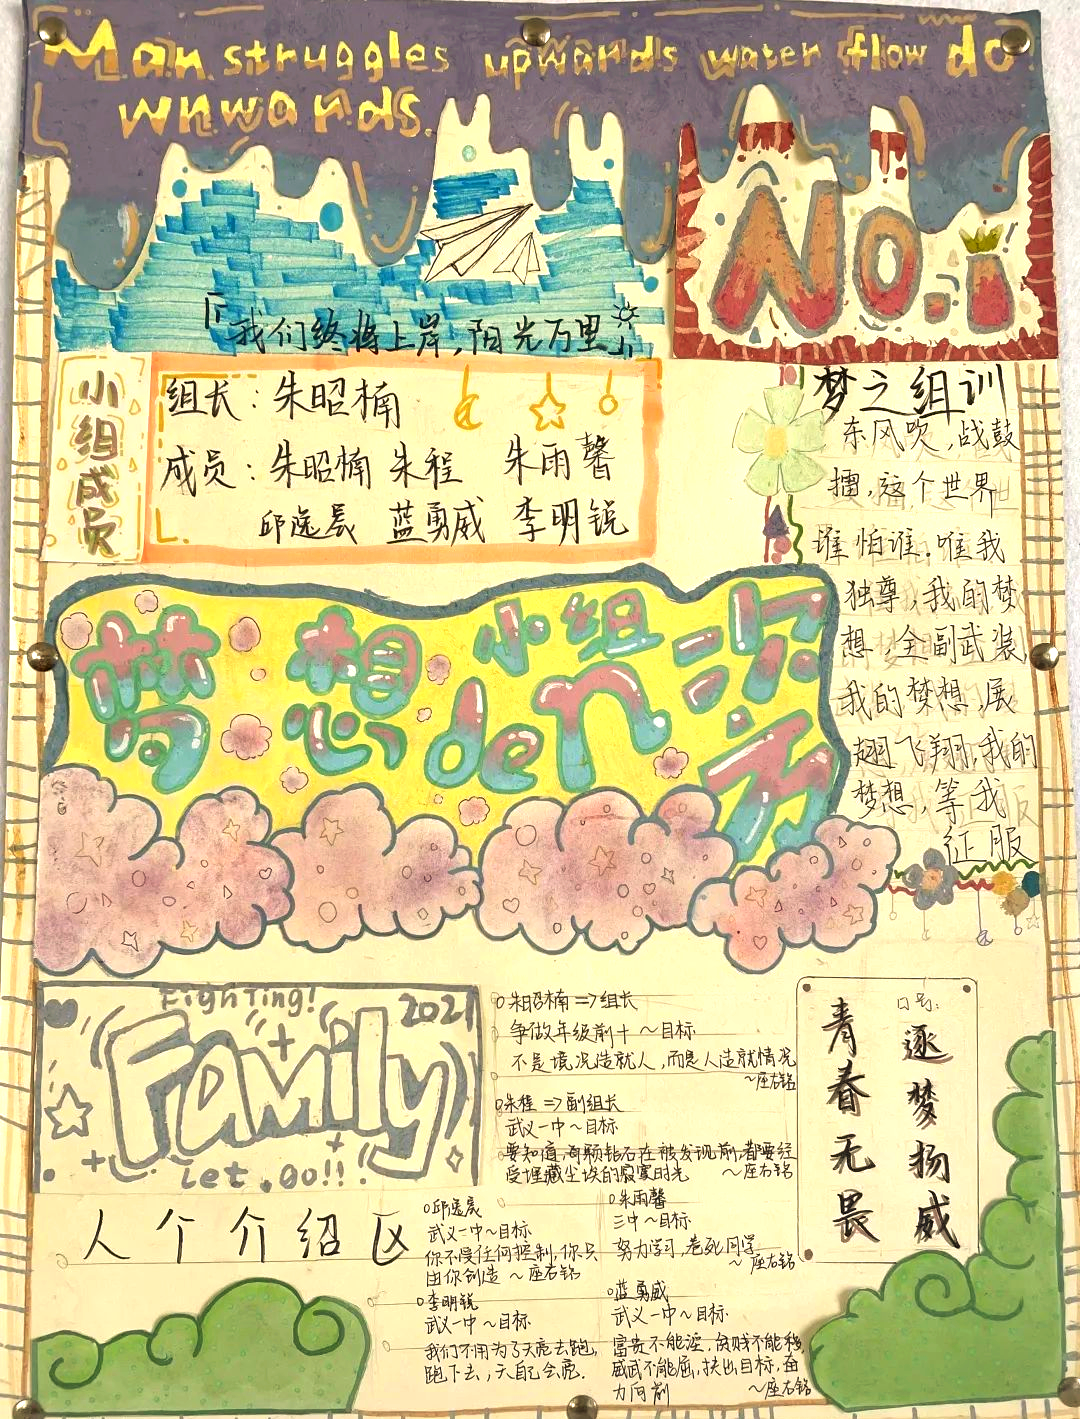 Man struggles upwards water flow do
wnwards.
No.1
『我们终将上岸，阳光万里』
小组成员
组长：朱昭楠
成员：朱昭楠 朱程 朱雨馨
邱逸晨 蓝勇威 李明锐
梦之组训
东风吹，战鼓
擂，这个世界
谁怕谁．唯我
独尊，我的梦
想，全副武装
我的梦想，展
翅飞翔，我的
梦想，等我
征服
梦想小组
de
Fighting! 2021
Family
Let.go!!!
朱昭楠=>组长
争做年级前十～目标
不是境况造就人，而是人造就情况
～座右铭
朱程=>副组长
武义一中～目标
要知道，每颗钻石在被发现前，都要经
受埋藏尘埃的寂寞时光 ～座右铭
口号：
逐梦扬威
青春无畏
人个介绍区
邱逸晨
武义一中～目标
你不受任何控制，你只
由你创造～座右铭
朱雨馨
三中～目标
努力学习，卷死同学
～座右铭
李明锐
武义一中～目标
我们不用为了天亮去跑，
跑下去，天自己会亮．
蓝勇威
武义一中～目标
富贵不能淫，贫贱不能移，
威武不能屈，扶出目标，奋
力向前 ～座右铭